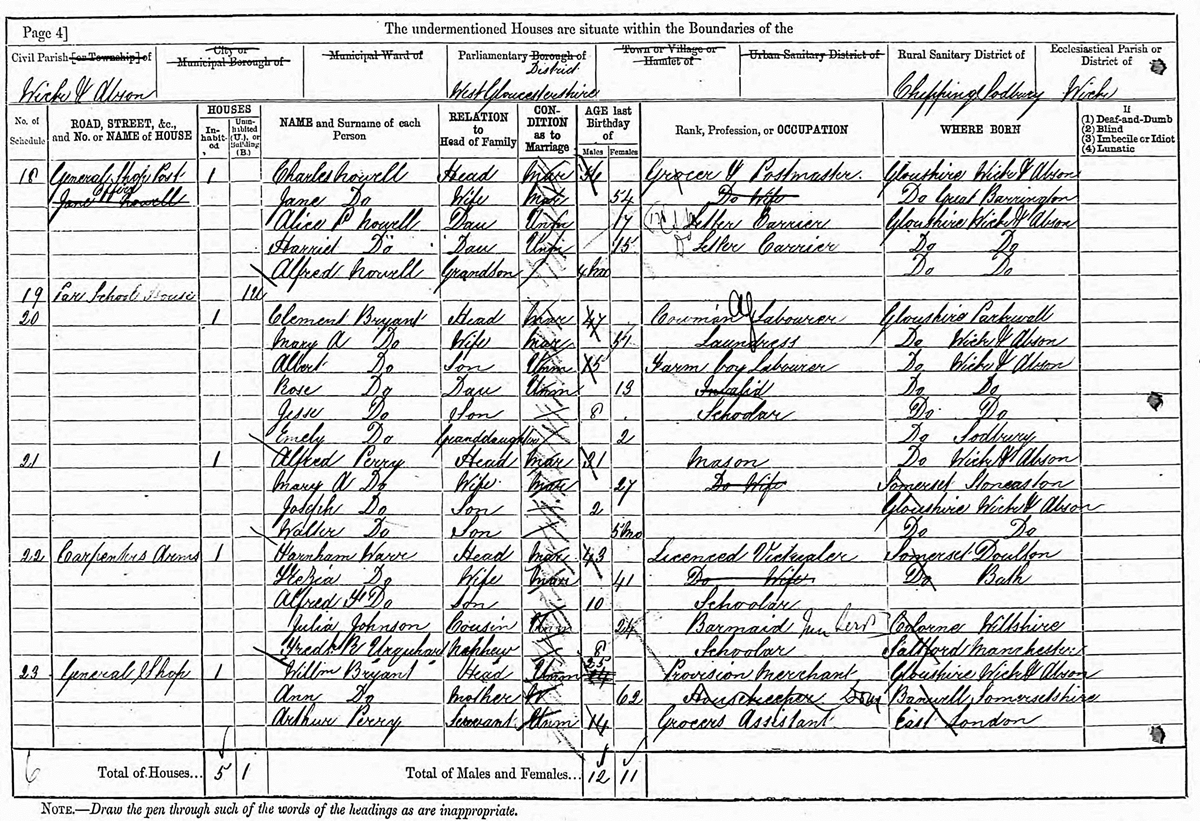 Page 4] The undermentioned Houses are situate within the Boundaries of the
Civil Parish [or Township] of City or Municipal Borough of Municipal Ward of Parliamentary Borough of District Town or Village or Hamlet of Urban Sanitary District of Rural Sanitary District of Ecclesiastical Parish or District of
Wick & Abson West Gloucestershire Chipping Sodbury Wick
No. of Schedule ROAD, STREET, &c., and No. or NAME of HOUSE HOUSES Inhabited Uninhabited (U.), or Building (B.) NAME and Surname of each Person RELATION to Head of Family CONDITION as to Marriage AGE last Birthday of Males Females Rank, Profession, or OCCUPATION WHERE BORN If (1) Deaf-and-Dumb (2) Blind (3) Imbecile or Idiot (4) Lunatic
18 General Shop Post Office 1 Charles Nowell Head Mar 56 Grocer & Postmaster Gloushire Wick & Abson
Jane Nowell Jane Do Wife Mar 54 Do Wife Do Great Barrington
Alice Nowell Dau Unm 17 Letter Carrier Gloushire Wick & Abson
Harriet Do Dau Unm 15 Letter Carrier Do Do
Alfred Nowell Grandson 4 mo Do Do
19 School House 1U
20 1 Clement Bryant Head Mar 47 Cowman Ag Labourer Gloushire Parkwall
Mary A Do Wife Mar Laundress Do Wick & Abson
Albert Do Son Unm 15 Farm boy Labourer Do Wick & Abson
Rose Do Dau Unm 13 Invalid Do Do
Jesse Do Son 8 Schoolar Do Do
Emely Do Granddaughter 2 Do Sodbury
21 1 Alfred Perry Head Mar 31 Mason Do Wick & Abson
Mary A Do Wife Mar 27 Do Wife Somerset Stoneaston
Joseph Do Son 2 Gloushire Wick & Abson
Walter Do Son 5 mo Do Do
22 Carpenters Arms 1 Farnham Warr Head Mar 43 Licenced Victualer Somerset Doulton
Do Wife Mar 41 Do Wife Do Bath
Alfred Do Son 10 Schoolar
Julia Johnson Cousin Unm 24 Barmaid Colorne Wiltshire
Fredk Urquhart Nephew 8 Schoolar Salford Manchester
23 General Shop 1 Willm Bryant Head Unm 25 Provision Merchant Gloushire Wick & Abson
Ann Do Mother W 62 Housekeeper Banwell Somersetshire
Arthur Perry Servant Unm 14 Grocers Assistant East London
6 Total of Houses... 5 1 Total of Males and Females... 12 11
NOTE.—Draw the pen through such of the words of the headings as are inappropriate.